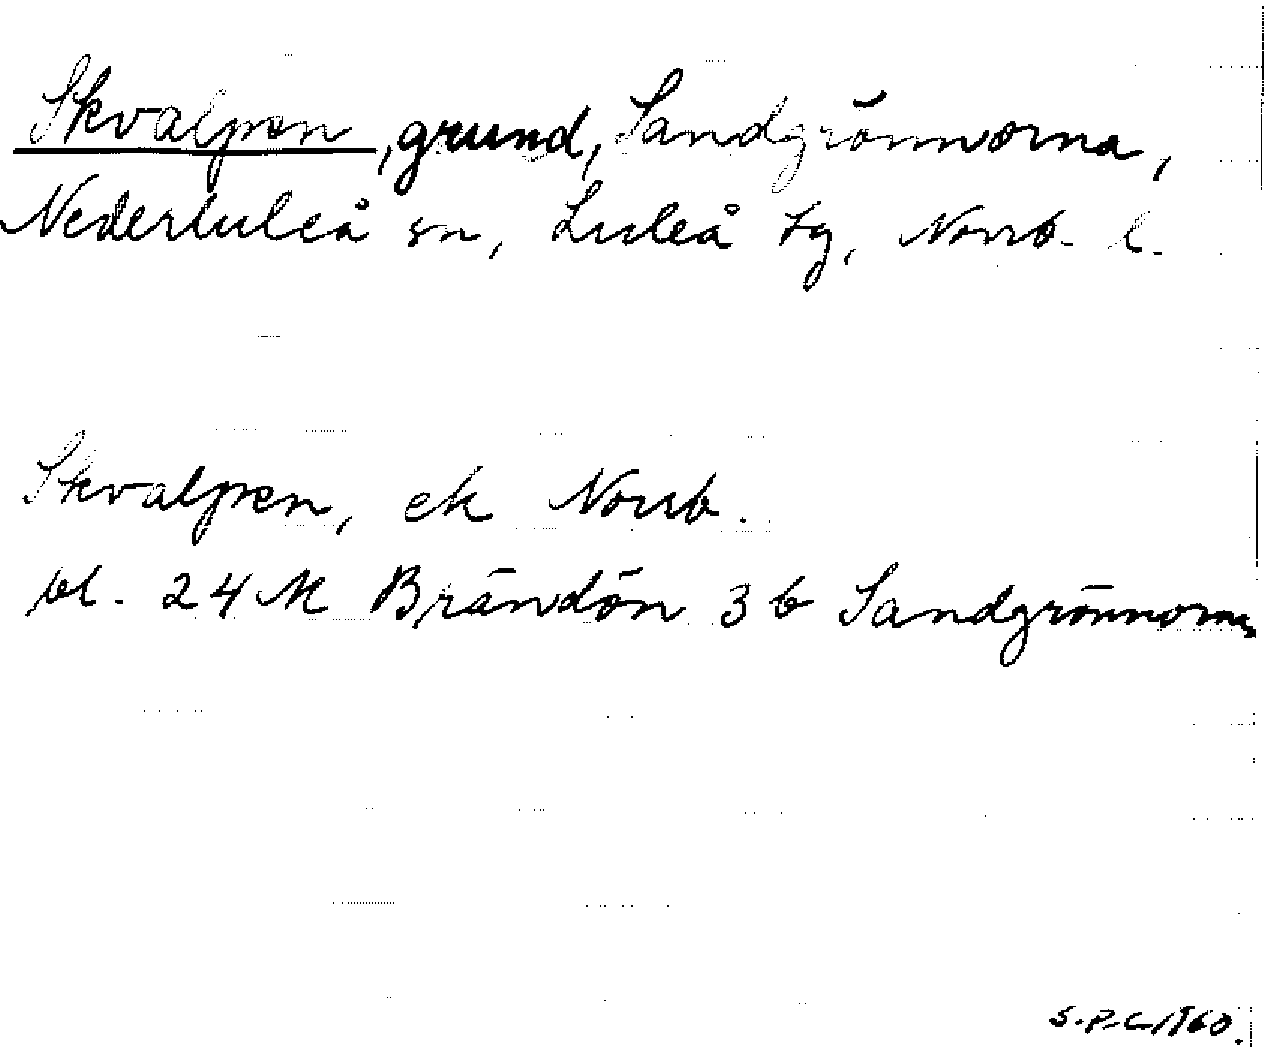 Skvalpen, grund, Sandgrönnorna,
Nederluleå sn, Luleå tg, Norrb. l.
Skvalpen, ek Norrb.
bl. 24 M Brändön 3 b Sandgrönnorna
S.P.C. 1960.